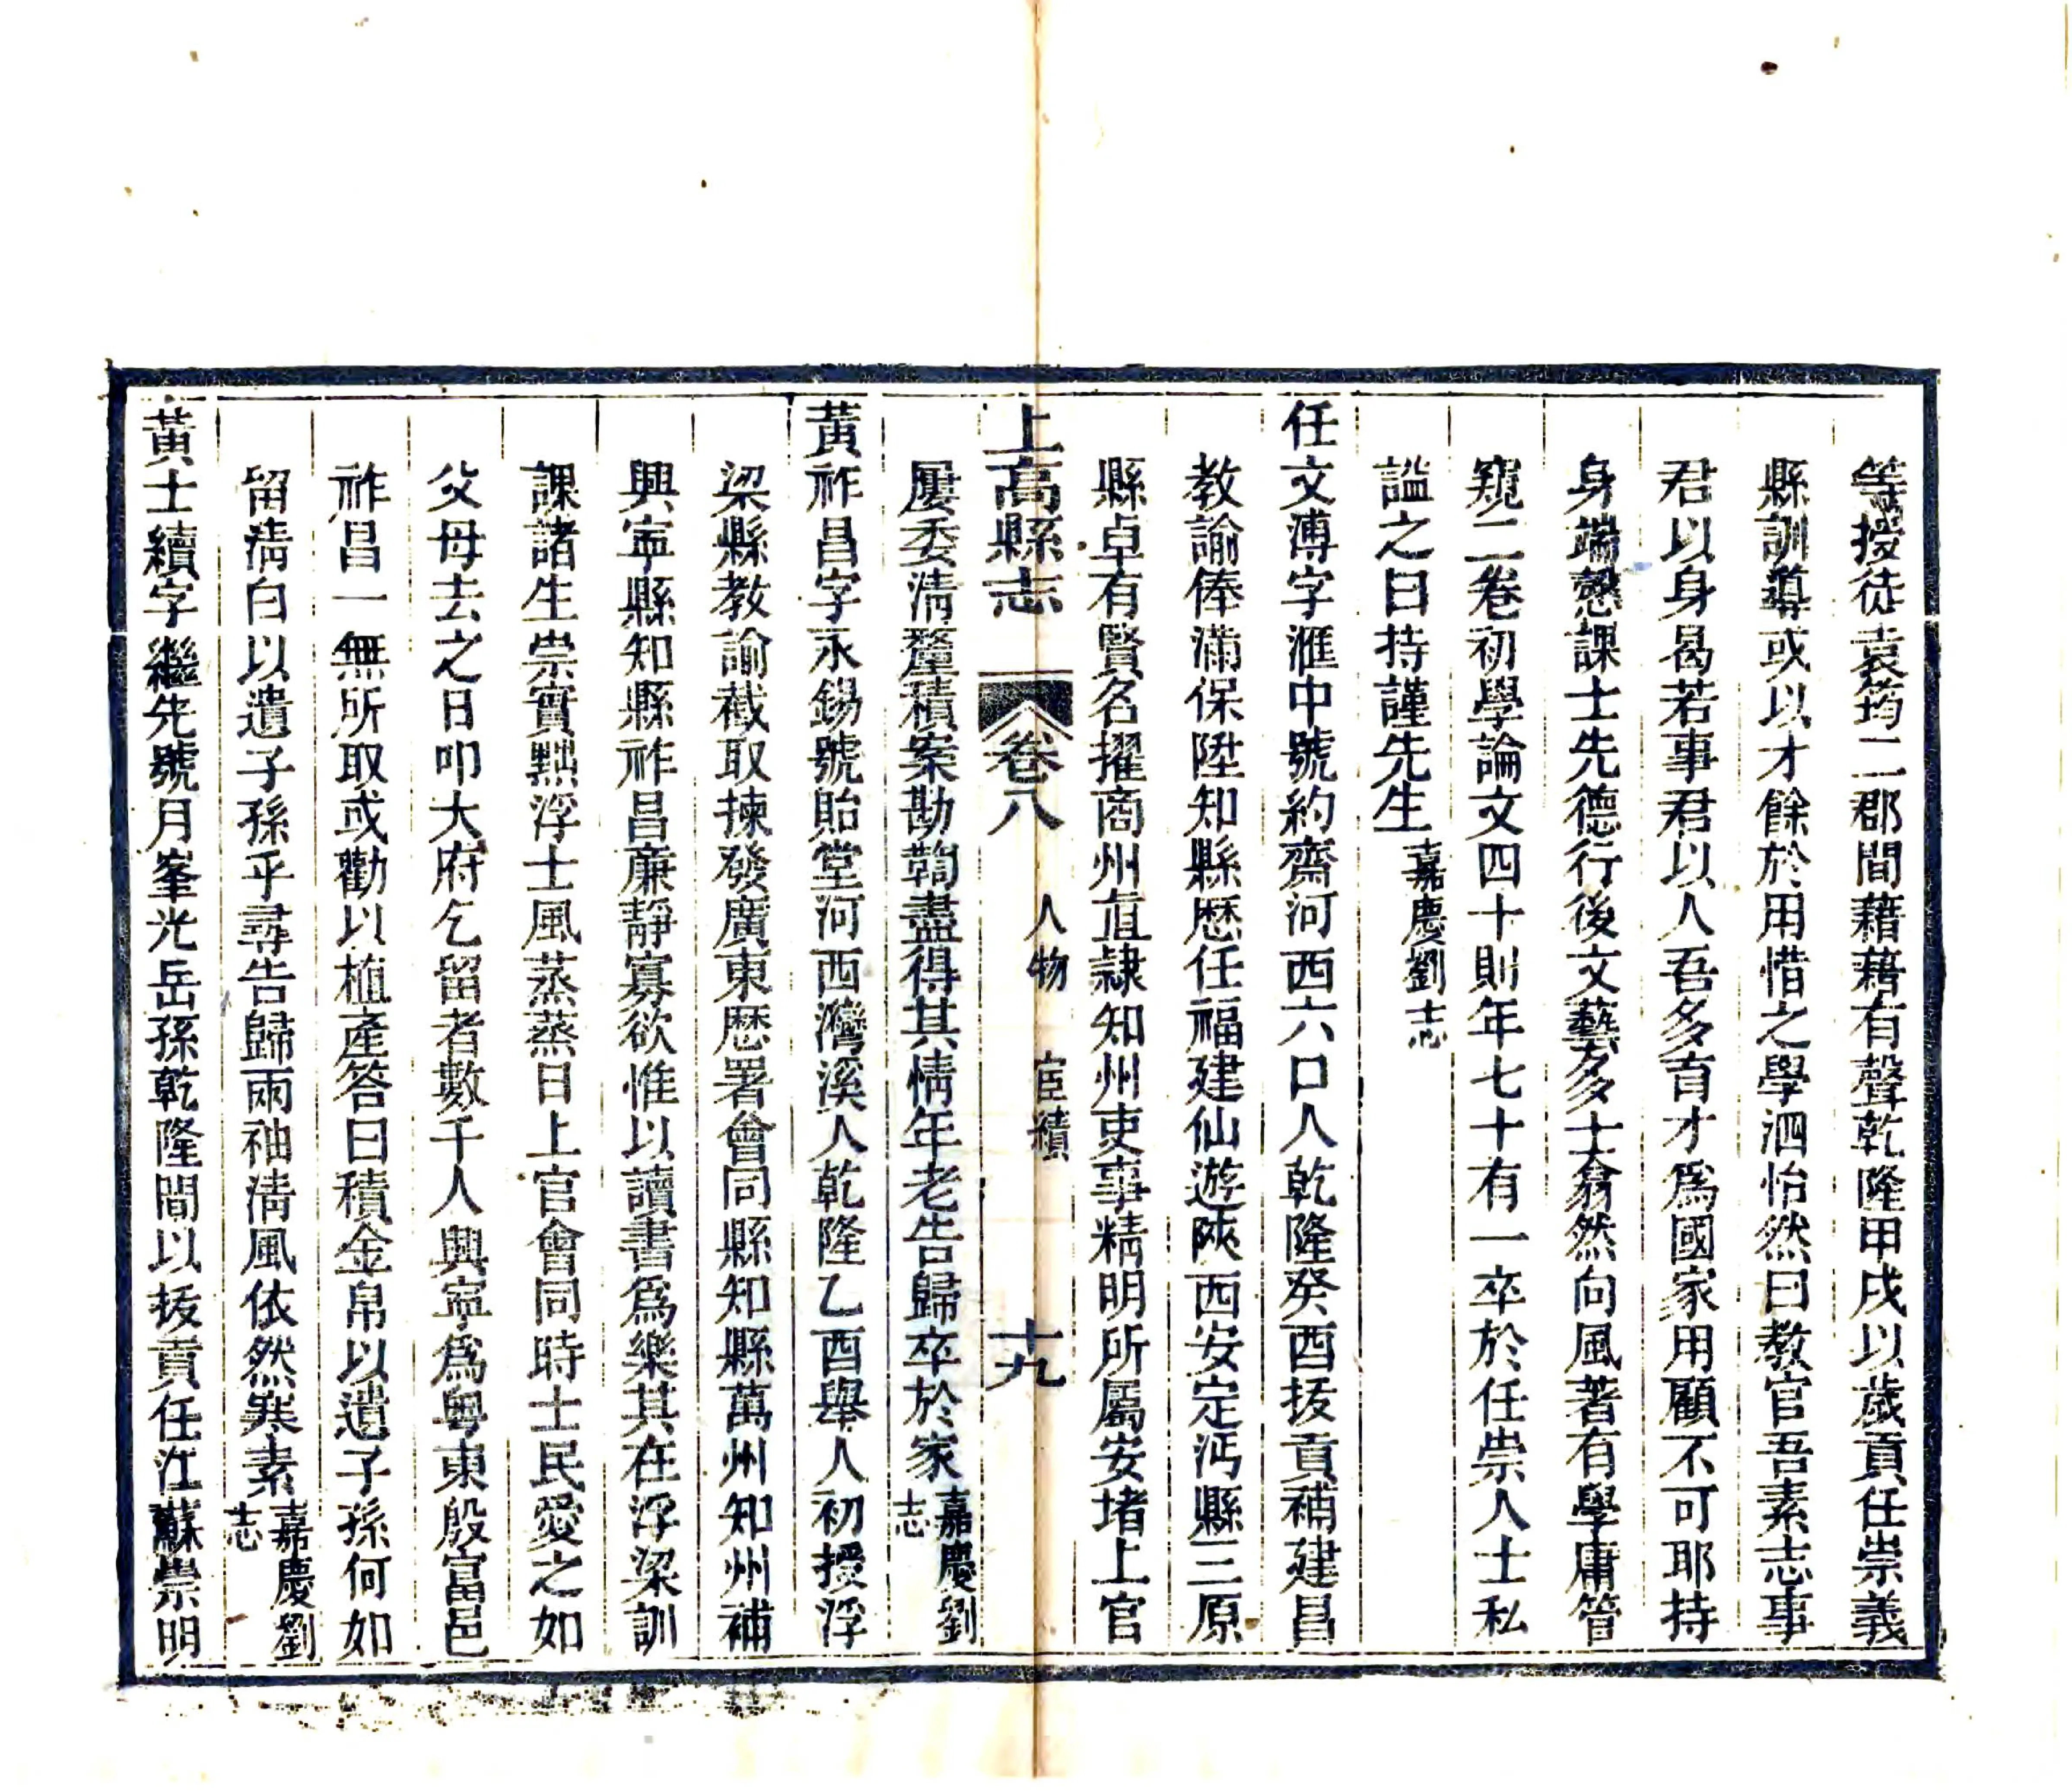 等授徒袁筠二郡間藉藉有聲乾隆甲戌以歲貢任崇義
縣訓導或以才餘於用惜之學泗怡然曰教官吾素志事
君以身曷若事君以人吾多育才爲國家用顧不可耶持
身端慤課士先德行後文藝多士翕然向風著有學庸管
窺二卷初學論文四十則年七十有一卒於任崇人士私
謚之曰持謹先生嘉慶劉志
任文溥字滙中號約齋河西六口人乾隆癸酉拔貢補建昌
教諭俸滿保陞知縣歷任福建仙遊陝西安定沔縣三原
縣卓有賢名擢商州直隸知州吏事精明所屬安堵上官
上高縣志 卷八 人物 宦績 十九
屢委淸釐積案勘鞫盡得其情年老告歸卒於家嘉慶劉志
黃祚昌字永錫號貽堂河西灣溪人乾隆乙酉舉人初授浮
梁縣教諭截取揀發廣東歷署會同縣知縣萬州知州補
興寧縣知縣祚昌廉靜寡欲惟以讀書爲樂其在浮梁訓
課諸生崇實黜浮士風蒸蒸日上官會同時士民愛之如
父母去之日叩大府乞留者數千人興寧爲粵東殷富邑
祚昌一無所取或勸以植產答曰積金帛以遺子孫何如
留淸白以遺子孫乎尋告歸兩袖淸風依然寒素嘉慶劉志
黃士績字繼先號月峯光岳孫乾隆間以拔貢任江蘇崇明